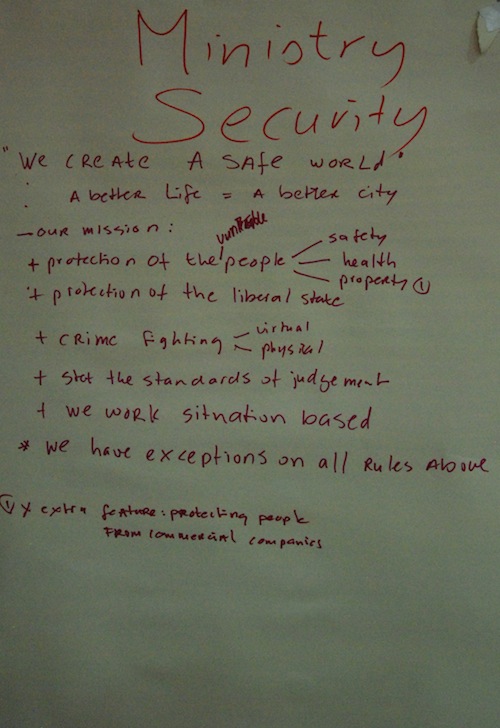 Ministry
Security
"We create A Safe world"
: A better Life = A better city
- our mission:
vulnerable
+ protection of the people
safety
health
property ①
+ protection of the liberal state
+ crime fighting
virtual
physical
+ stat the standards of judgement
+ we work situation based
* we have exceptions on all Rules Above
① x extra feature: protecting people
From commercial companies